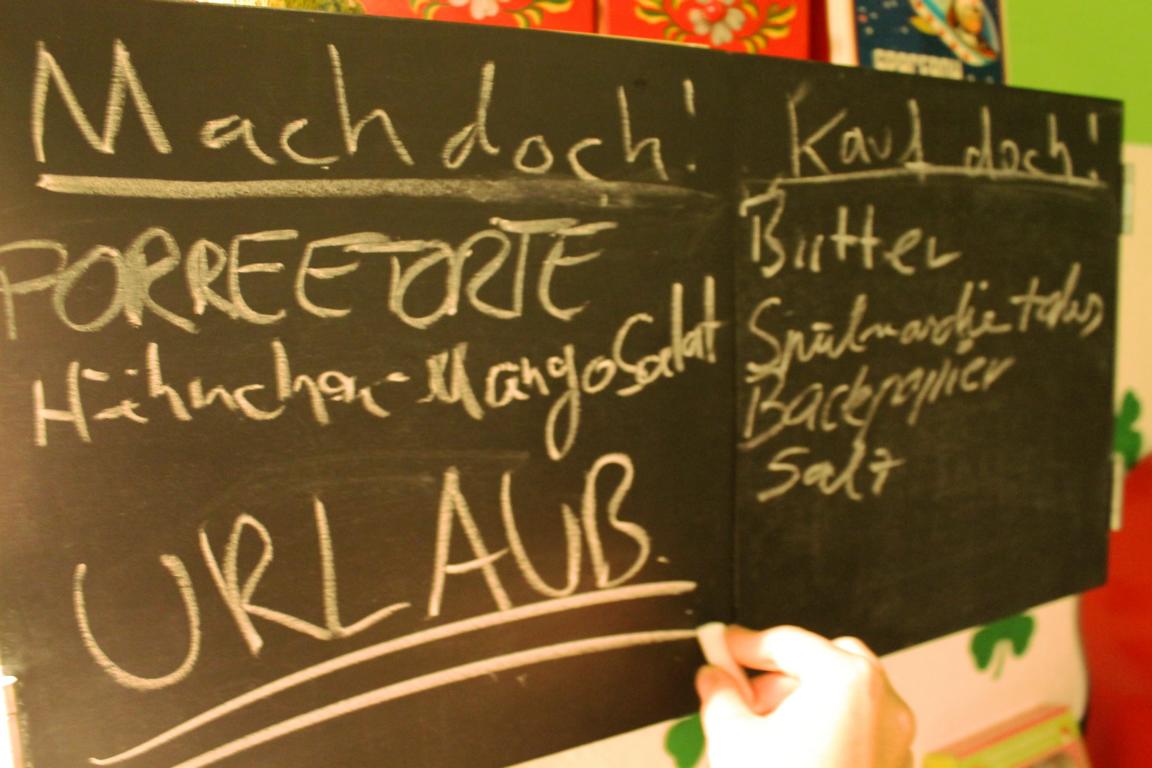 Mach doch!
PORREETORTE
Hühnchen-MangoSalat
URLAUB.
Kauf doch!
Butter
Backpapier
Salz